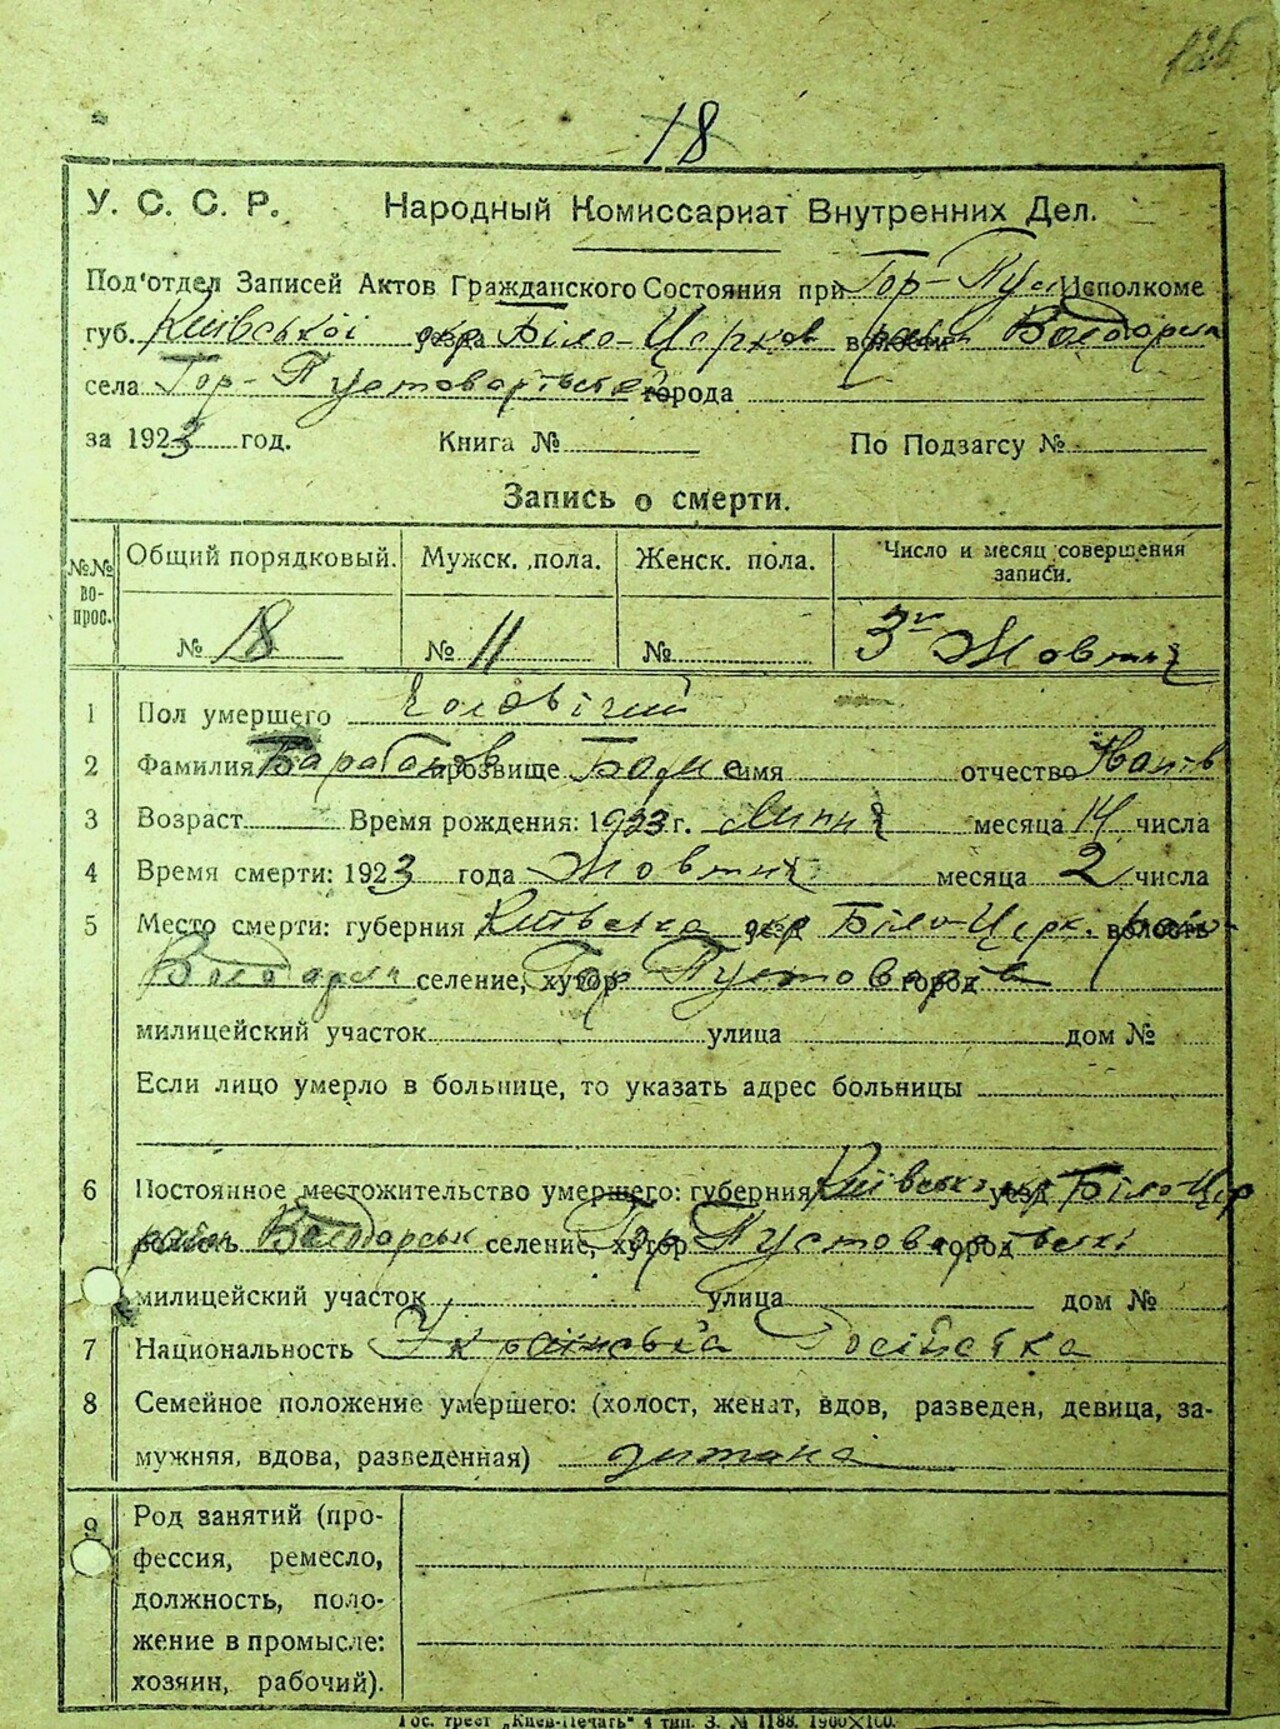 126
18
У. С. С. Р. Народный Комиссариат Внутренних Дел.
Под'отдел Записей Актов Гражданского Состояния при Гор-Пус Исполкоме
губ. Київської уезда окр Біло-Церков волости район Володарськ
села Гор-Пустоварівськ города
за 1923 год. Книга № По Подзагсу №
Запись о смерти.
№№ вопрос. Общий порядковый. Мужск. пола. Женск. пола. Число и месяц совершения записи.
№ 18 № 11 № 3го Жовтня
1 Пол умершего Чоловічий
2 Фамилия Барабанов прозвище имя отчество Іванів
3 Возраст Время рождения: 1923 г. Липня месяца 14 числа
4 Время смерти: 1923 года Жовтня месяца 2 числа
5 Место смерти: губерния Київська уезд окр Біло-Церк. волость район
Володарськ селение, хутор Гор Пустоварівка город
милицейский участок улица дом №
Если лицо умерло в больнице, то указать адрес больницы
6 Постоянное местожительство умершего: губерния Київська уезд окр Біло-Цер
волость район Володарськ селение, хутор Гор Пустоварівські город
милицейский участок улица дом №
7 Национальность Українська Російська
8 Семейное положение умершего: (холост, женат, вдов, разведен, девица, за-
мужняя, вдова, разведенная) дитина
9 Род занятий (про-
фессия, ремесло,
должность, поло-
жение в промысле:
хозяин, рабочий).
Гос. трест „Киев-Печать" 4 тип. З. № 1188. 1900×100.